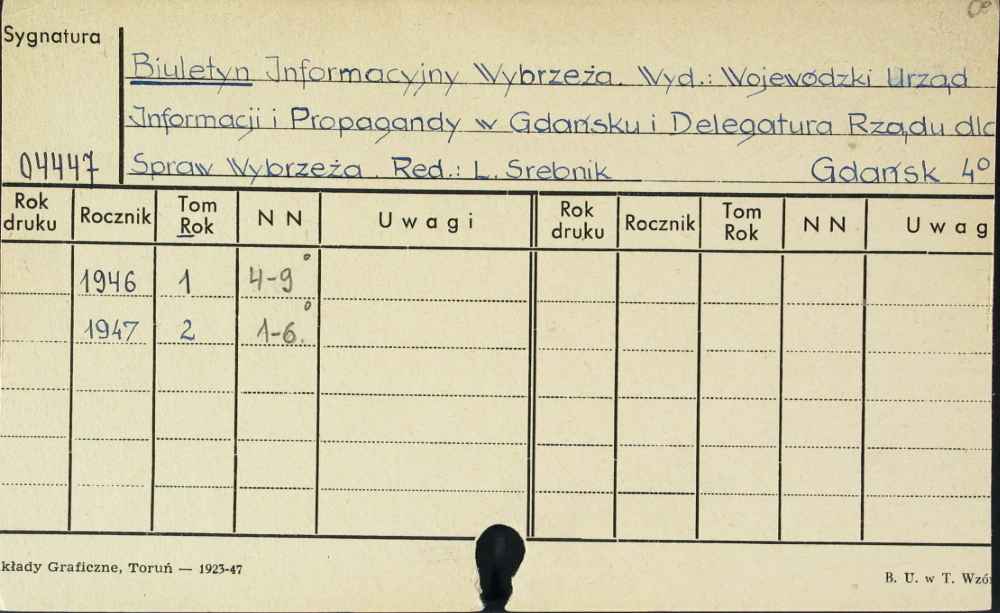 Sygnatura
Biuletyn Informacyjny Wybrzeża. Wyd.: Wojewódzki Urząd
Informacji i Propagandy w Gdańsku i Delegatura Rządu dla
04447 Spraw Wybrzeża. Red.: L. Srebnik Gdańsk 4°
Rok druku Rocznik Tom Rok N N Uwagi Rok druku Rocznik Tom Rok N N Uwag
1946 1 4-9°
1947 2 1-6.°
kłady Graficzne, Toruń — 1923-47
B. U. w T. Wzór